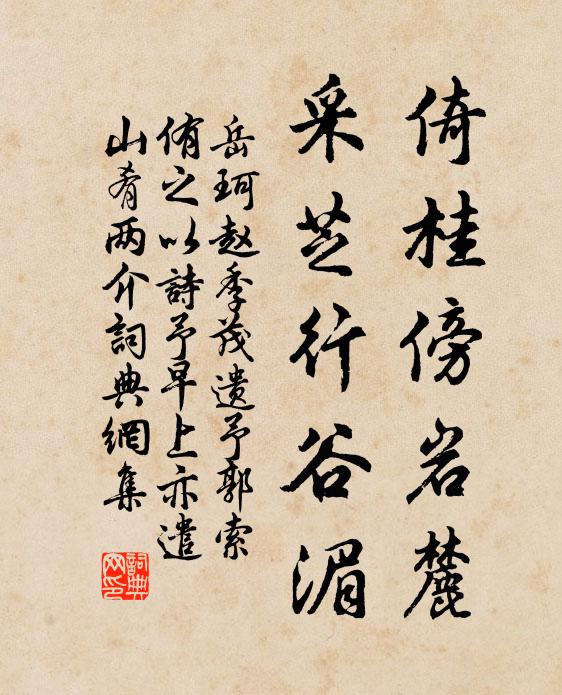 倚桂傍岩麓
采芝行谷湄
岳珂赵季茂遗予郭索
侑之以詩予早上亦遣
山肴两介詞典網集
詞典網印